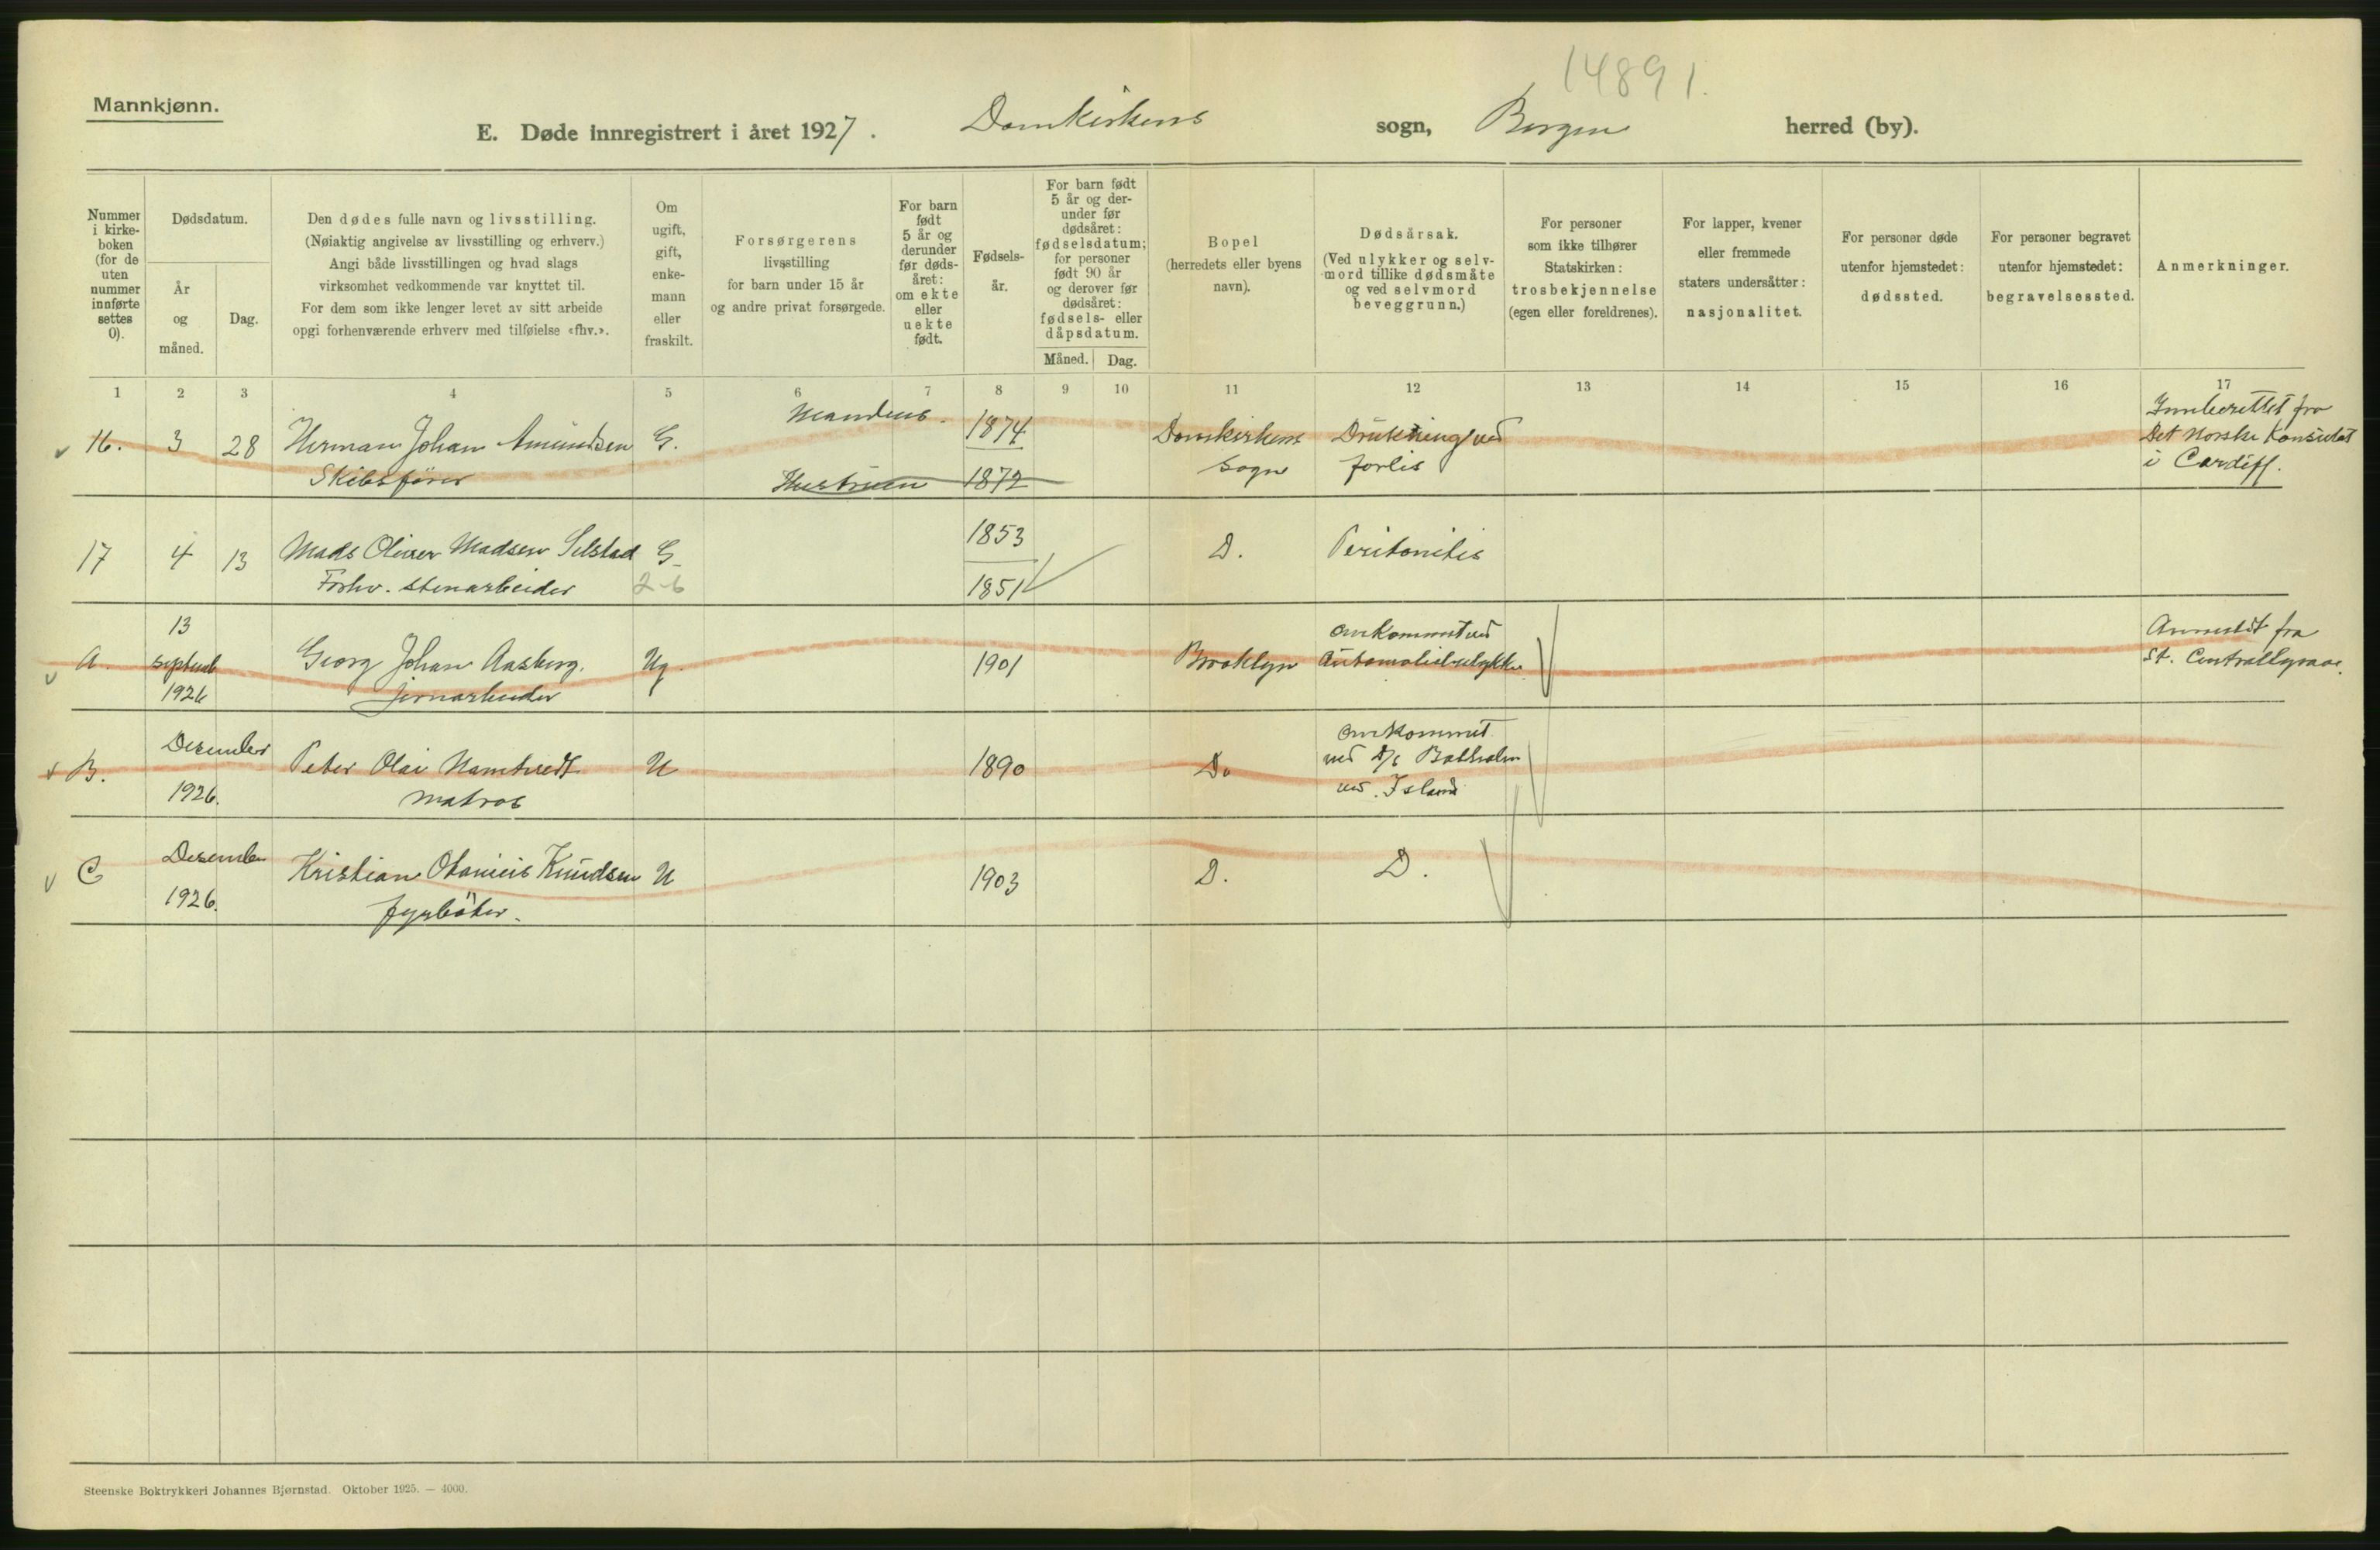 14891.
Mannkjønn.
E. Døde innregistrert i året 1927. Domkirkens sogn, Bergen herred (by).
Nummer i kirke-boken (for de uten nummer innførte settes 0).
Dødsdatum.
År og måned.
Dag.
Den dødes fulle navn og livsstilling.
(Nøiaktig angivelse av livsstilling og erhverv.)
Angi både livsstillingen og hvad slags
virksomhet vedkommende var knyttet til.
For dem som ikke lenger levet av sitt arbeide
opgi forhenværende erhverv med tilføielse «fhv.».
Om ugift, gift, enke-mann eller fraskilt.
Forsørgerens
livsstilling
for barn under 15 år
og andre privat forsørgede.
For barn født 5 år og derunder før døds-året: om ekte eller uekte født.
Fødsels-år.
For barn født 5 år og der-under før dødsåret: fødselsdatum; for personer født 90 år og derover før dødsåret: fødsels- eller dåpsdatum.
Måned. Dag.
Bopel
(herredets eller byens
navn).
Dødsårsak.
(Ved ulykker og selv-
mord tillike dødsmåte
og ved selvmord
beveggrunn.)
For personer
som ikke tilhører
Statskirken:
trosbekjennelse
(egen eller foreldrenes).
For lapper, kvener
eller fremmede
staters undersåtter:
nasjonalitet.
For personer døde
utenfor hjemstedet:
dødssted.
For personer begravet
utenfor hjemstedet:
begravelsessted.
Anmerkninger.
1 2 3 4 5 6 7 8 9 10 11 12 13 14 15 16 17
16. 3 28 Herman Johan Amundsen G. Mandens. 1874 Domkirkens Drukning ved Innberettet fra
Det Norske Konsulat
Skibsfører Hustruen 1872 Sogn forlis i Cardiff.
17 4 13 Mads Oliver Madsen Selstad G 1853 D. Peritonitis
Forhv. stenarbeider 2-6 1851
A. 13 Georg Johan Aasberg. Ug. 1901 Brooklyn omkommet ved Anmeldt fra
septemb jernarbeider Automobilulykke St.
1926
B. Desember Peter Olai U 1890 Do omkommet
1926. matros ved D/S Balholm
ved Island
C Desember Kristian Knudsen U 1903 D. D.
1926. fyrbøter.
Steenske Boktrykkeri Johannes Bjørnstad. Oktober 1925. — 4000.